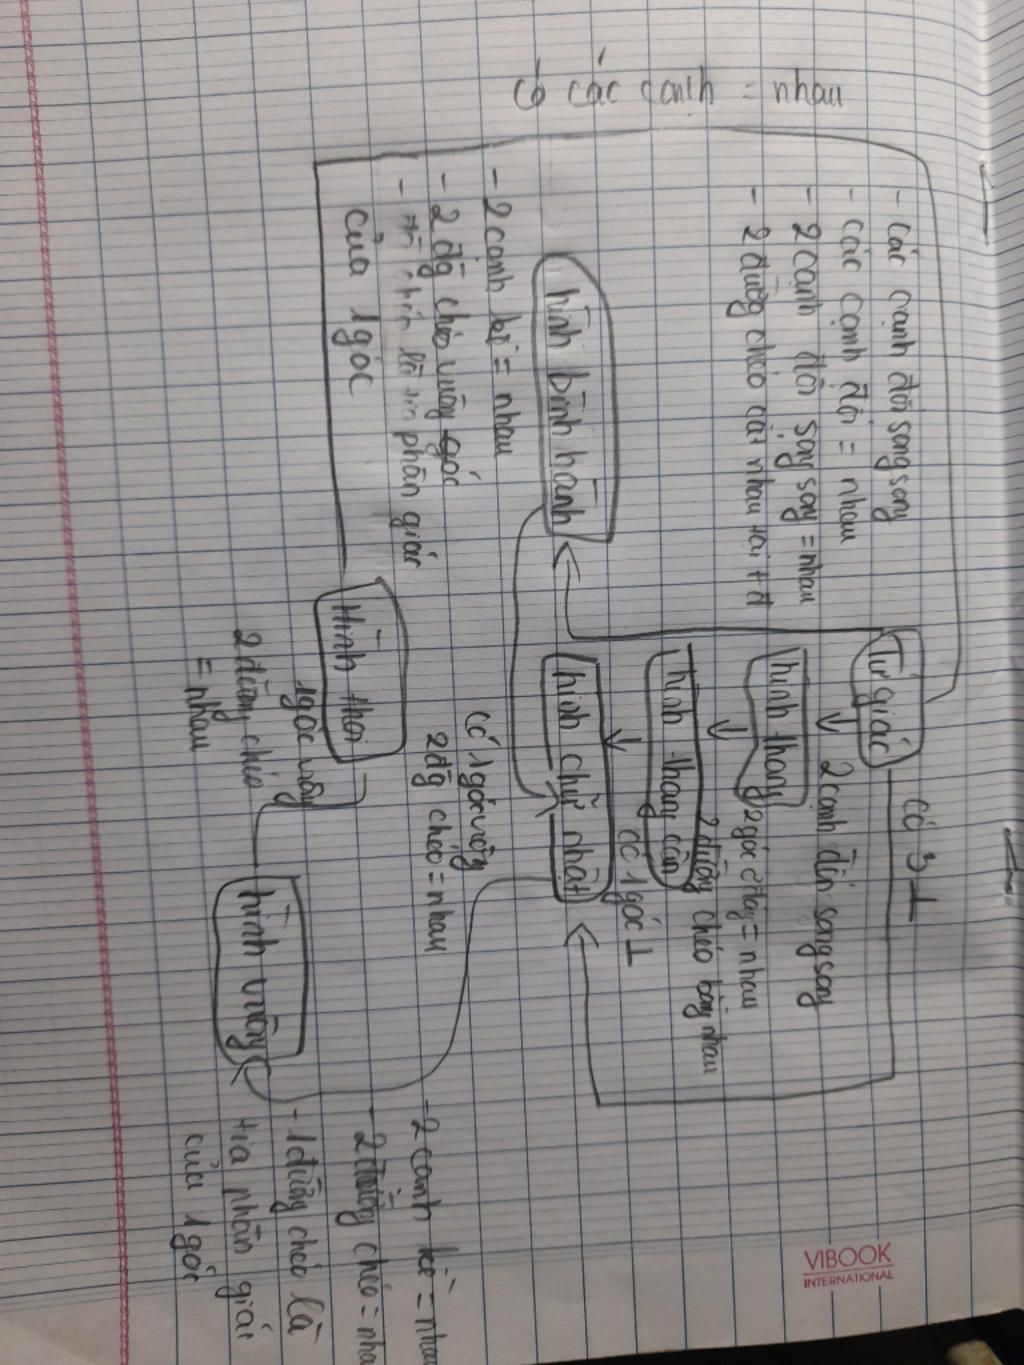 có các cạnh = nhau
Tứ giác
có 3 ⊥
- các cạnh đối song song
- các cạnh đối = nhau
- 2 cạnh đối song song = nhau
- 2 đường chéo cắt nhau tại t đ
2 cạnh đối song song
hình thang
2 góc ở đáy = nhau
hình thang cân
2 đường chéo bằng nhau
có 1 góc ⊥
hình bình hành
hình chữ nhật
- 2 cạnh kề = nhau
- 2 đg chéo vuông góc
phân giác
của 1 góc
có 1 góc vuông
2 đg chéo = nhau
Hình thoi
1 góc vuông
2 đường chéo
= nhau
hình vuông
- 2 cạnh kề = nhau
- 2 đường chéo = nha
- 1 đường chéo là
tia phân giác
của 1 góc
VIBOOK
INTERNATIONAL